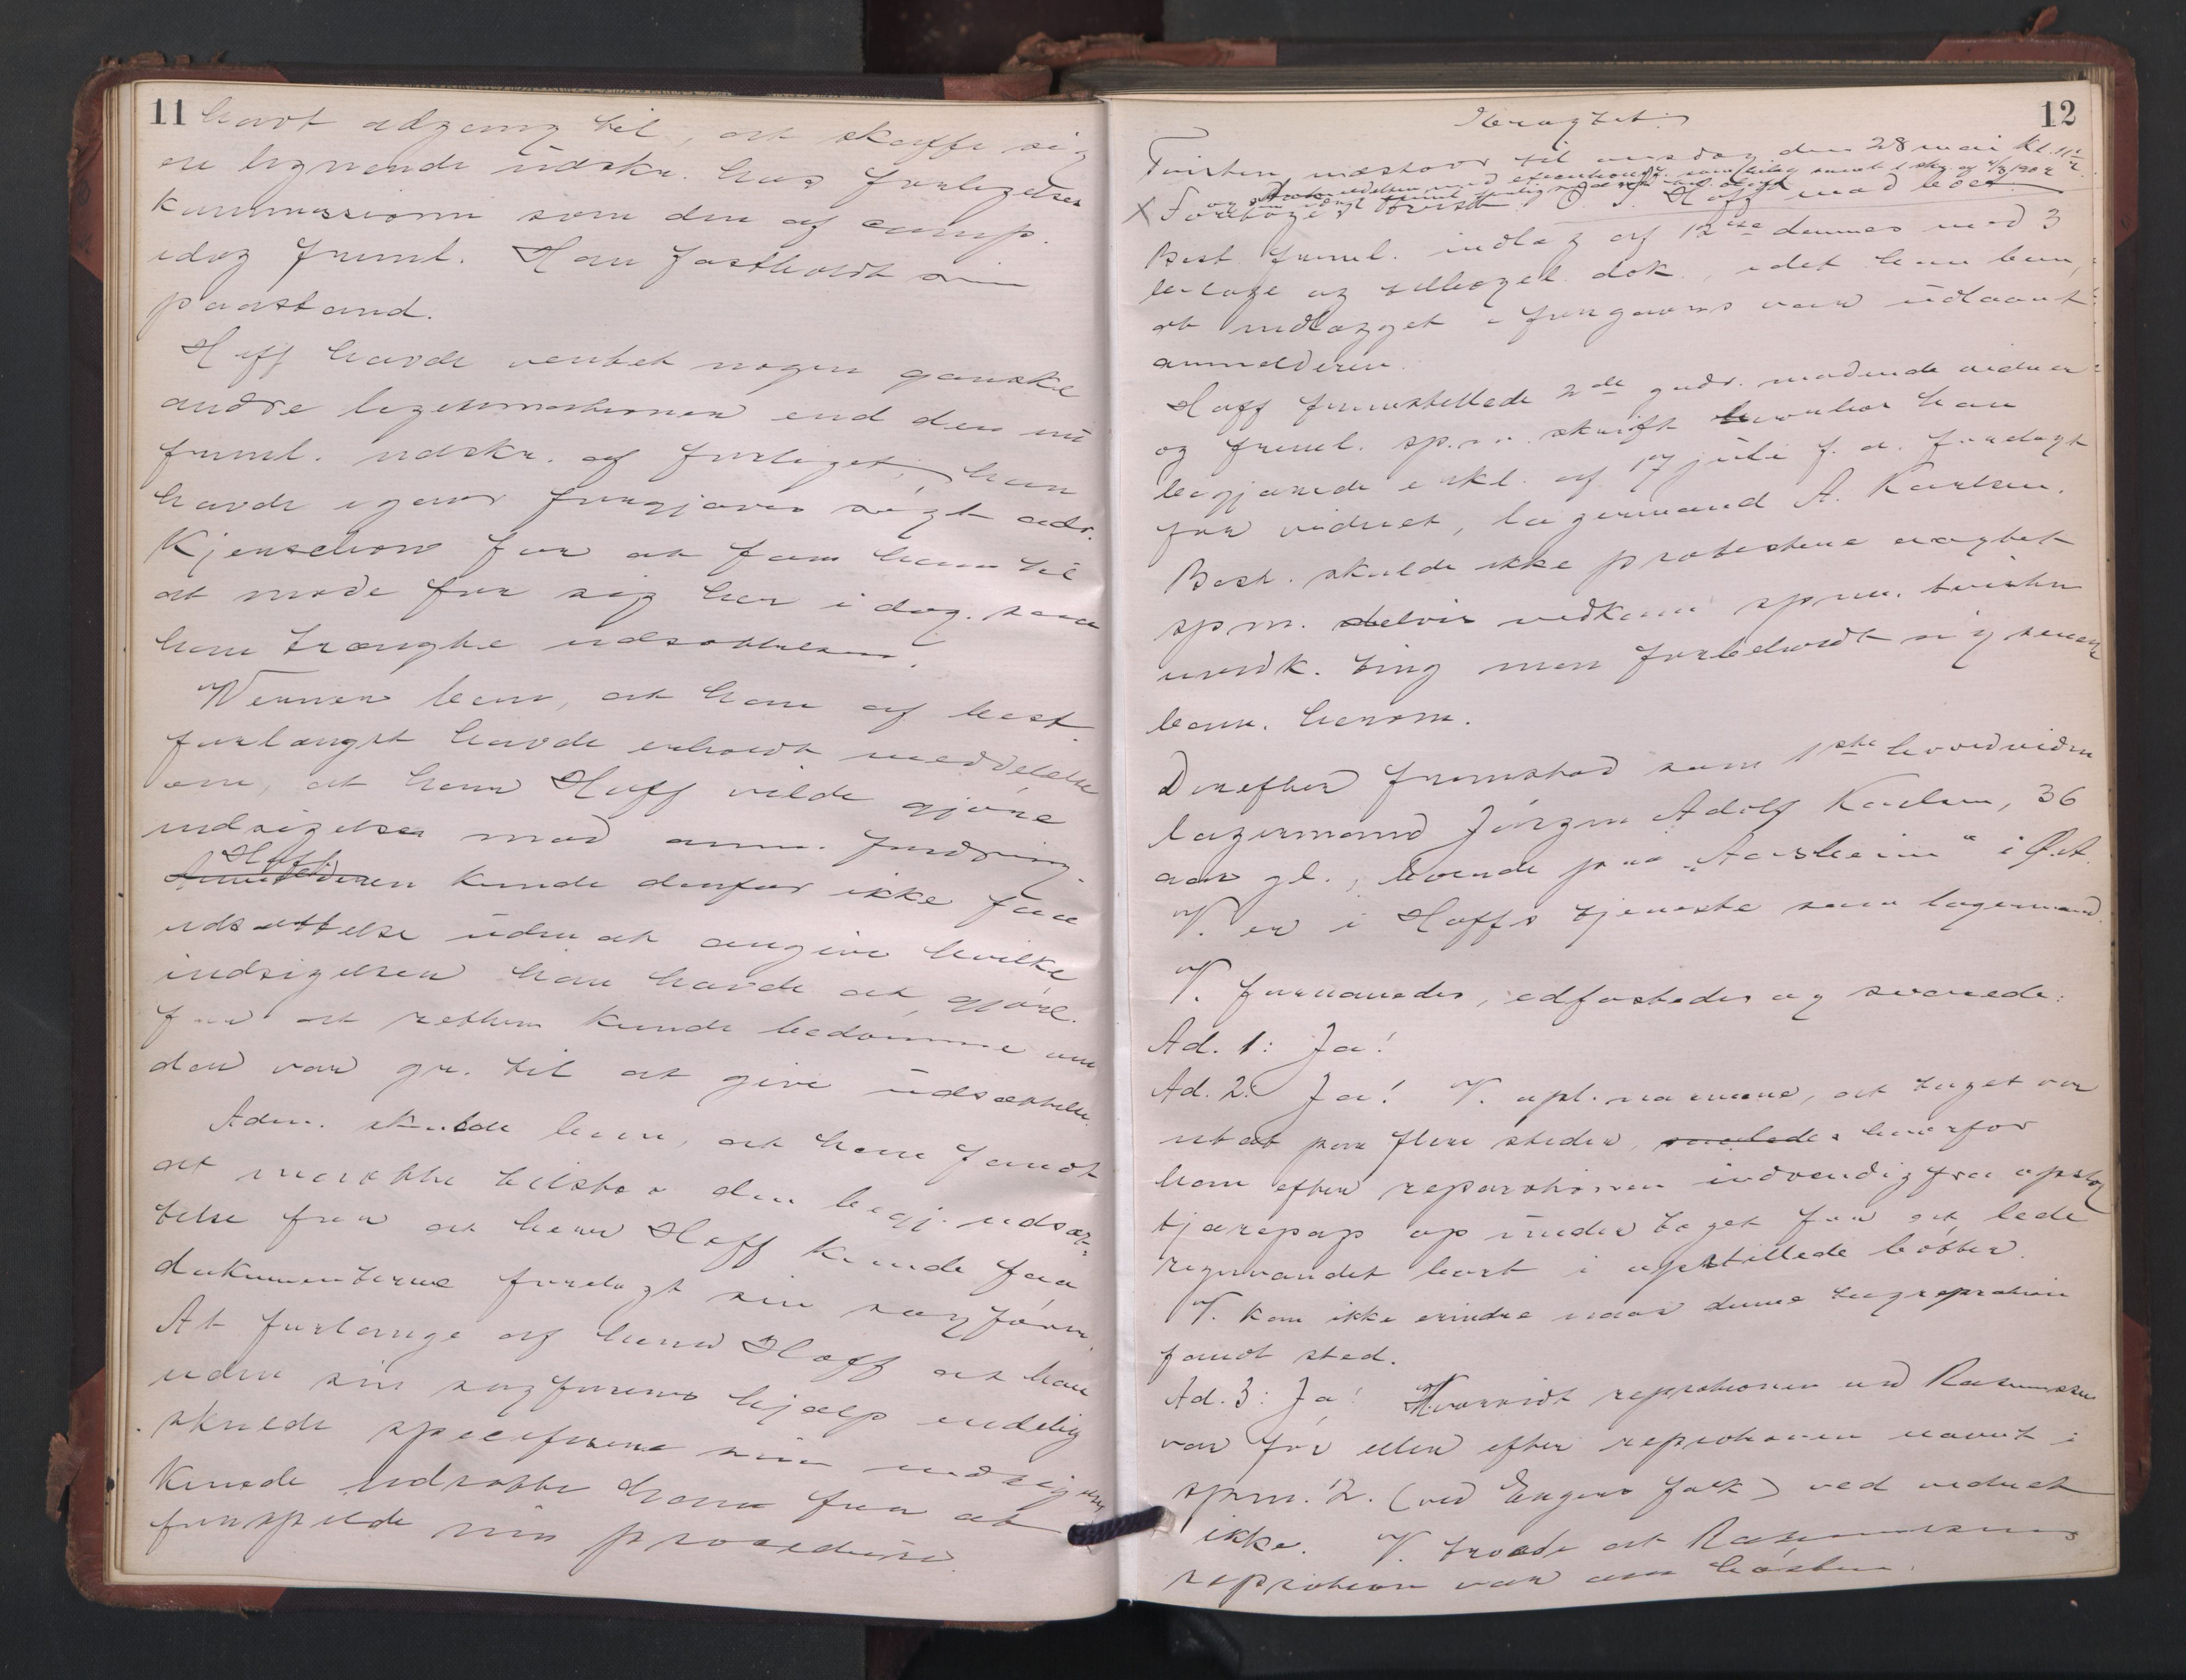 11
havt adgang til, at skaffe sig
en lignende udskr. hos forligelses
kommissionen som den af comp.
idag freml. Han fastholdt sin
paastand.
Hoff havde ventet nogen ganske
andre legitimationer end den nu
freml. udskr. af forliget; han
havde igaar forgjæves søgt adv.
Kjenschow for at faa ham til
at møde for sig her i dag. saa
han trængte udsættelsen.
Werner bem, at han af best
forlængst havde erholdt meddelelse
om, at herr Hoff vilde gjøre
indsigelser mod anm. fordring
Hoff
Anmelderen kunde derfor ikke faa
udsættelse uden at angive hvilke
indsigelser han havde at gjøre.
for at retten kunde bedømme om
der var gr. til at give udsættelse.
Adm. skulde bem, at han fandt
at maatte tilstaa den begj. udsæt-
telse for at herr Hoff kunde faa
dokumenterne forelagt sin sagfører.
At forlange af herr Hoff at han
uden sin sagførers hjælp endelig
skulde specificere sine indsigelser
kunde udsætte ham for at
forspilde sin procedure.
12
Fremlagt:
Tvisten udstaar til onsdag den 28 mai kl. 11
X Foretoges tvist O. J. Hoff mod boet
Best. freml. indlæg af 12te dennes med 3
bilage og tilbagel. dok., idet han bem,
at indlægget i forgaars var udlaant
anmelderen.
Hoff fremstillede 2de godv. mødende vidner
og freml. sp.m. skrift hvorhos han
begjærede erkl. af 17 juli f. a. forelagt
for vidnet, lagermand A. Karlsen.
Best. skulde ikke protestere uagtet
spm. delvis vedkom spm. tvisten
uvedk. ting men forbeholdt sig senere
bem. herom.
Derefter fremstod som 1ste hovedvidne
lagermand Jørgen Adolf Karlsen, 36
aar gl., boende paa "Aasheim" i Ø.A.
V. er i Hoffs tjeneste som lagermand.
V. formanedes, edfæstedes og svarede:
Ad. 1: Ja!
Ad. 2: Ja! V. opl. nærmere, at taget var
utæt paa flere steder, saaledes hvorfor
han efter reparationen indvendig fra opslog
tjærepap op under taget for at lede
regnvandet bort i opstillede bøtter.
V. kan ikke erindre naar denne tagrepration
fandt sted.
Ad. 3: Ja! Hvorvidt reprationen ved Rasmussen
var før eller efter reprationen nævnt i
spm. 2. (ved Engers folk) ved vidnet
ikke. V. troede at Rasmussens
repration var om høsten.